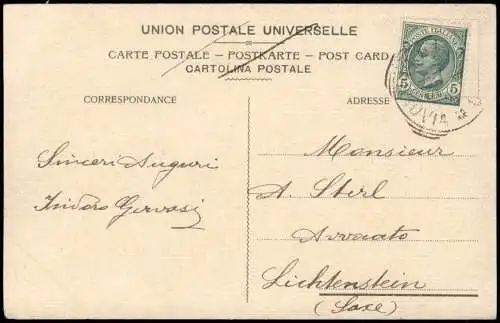 UNION POSTALE UNIVERSELLE
CARTE POSTALE – POSTKARTE – POST CARD
CARTOLINA POSTALE
CORRESPONDANCE
ADRESSE
POSTE ITALIANE
5 5
Sinceri Auguri
Isidoro Gervasi
Monsieur
A. Sterl
Avvocato
Lichtenstein
(Saxe)